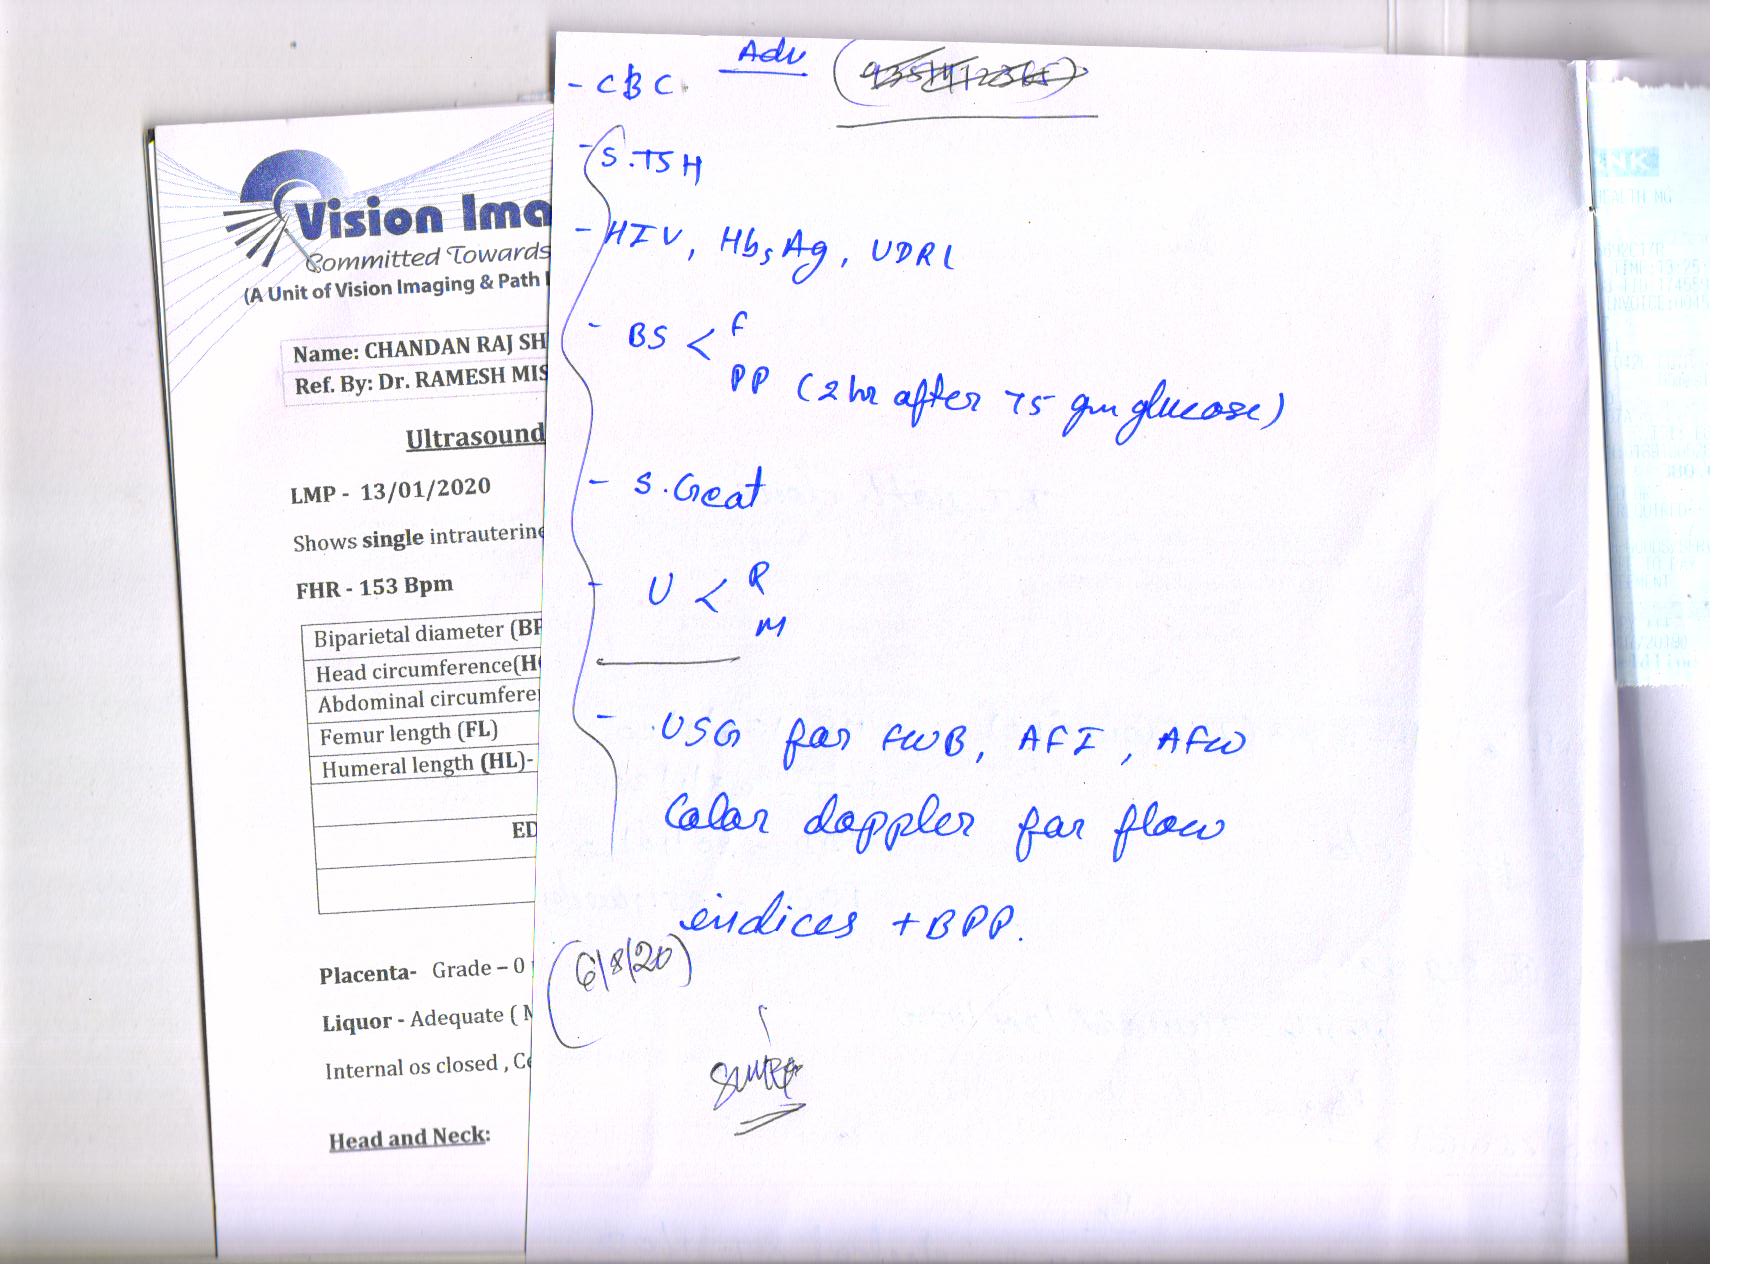 Adv
- CBC
- S.TSH
- HIV, HbsAg, VDRL
- BS < F
PP (2 hr after 75 gm glucose)
- S.Creat
- U < R
M
- USG for FWB, AFI, AFW
Color doppler for flow
indices + BPP.
(6/8/20)
Vision Ima
Committed Towards
(A Unit of Vision Imaging & Path
Name: CHANDAN RAJ SH
Ref. By: Dr. RAMESH MIS
Ultrasound
LMP - 13/01/2020
Shows single intrauterine
FHR - 153 Bpm
Biparietal diameter (BP
Head circumference(H
Abdominal circumfere
Femur length (FL)
Humeral length (HL)-
ED
Placenta- Grade - 0
Liquor - Adequate ( M
Internal os closed , Ce
Head and Neck: